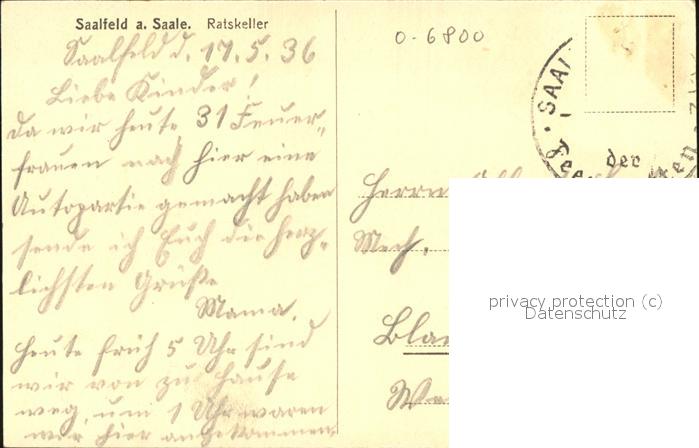 Saalfeld a. Saale. Ratskeller
0-6800
Saalfeld d. 17.5.36
Liebe Kinder!
Da wir heute 31 Feuer-
frauen nach hier eine
Autopartie gemacht haben
sende ich Euch die herz-
lichsten Grüße
Mama.
Heute früh 5 Uhr sind
wir von zu Hause
weg, um 1 Uhr waren
wir hier angekommen.
SAAL
der
Feen
Herrn
Mech.
Bla
privacy protection (c)
Datenschutz